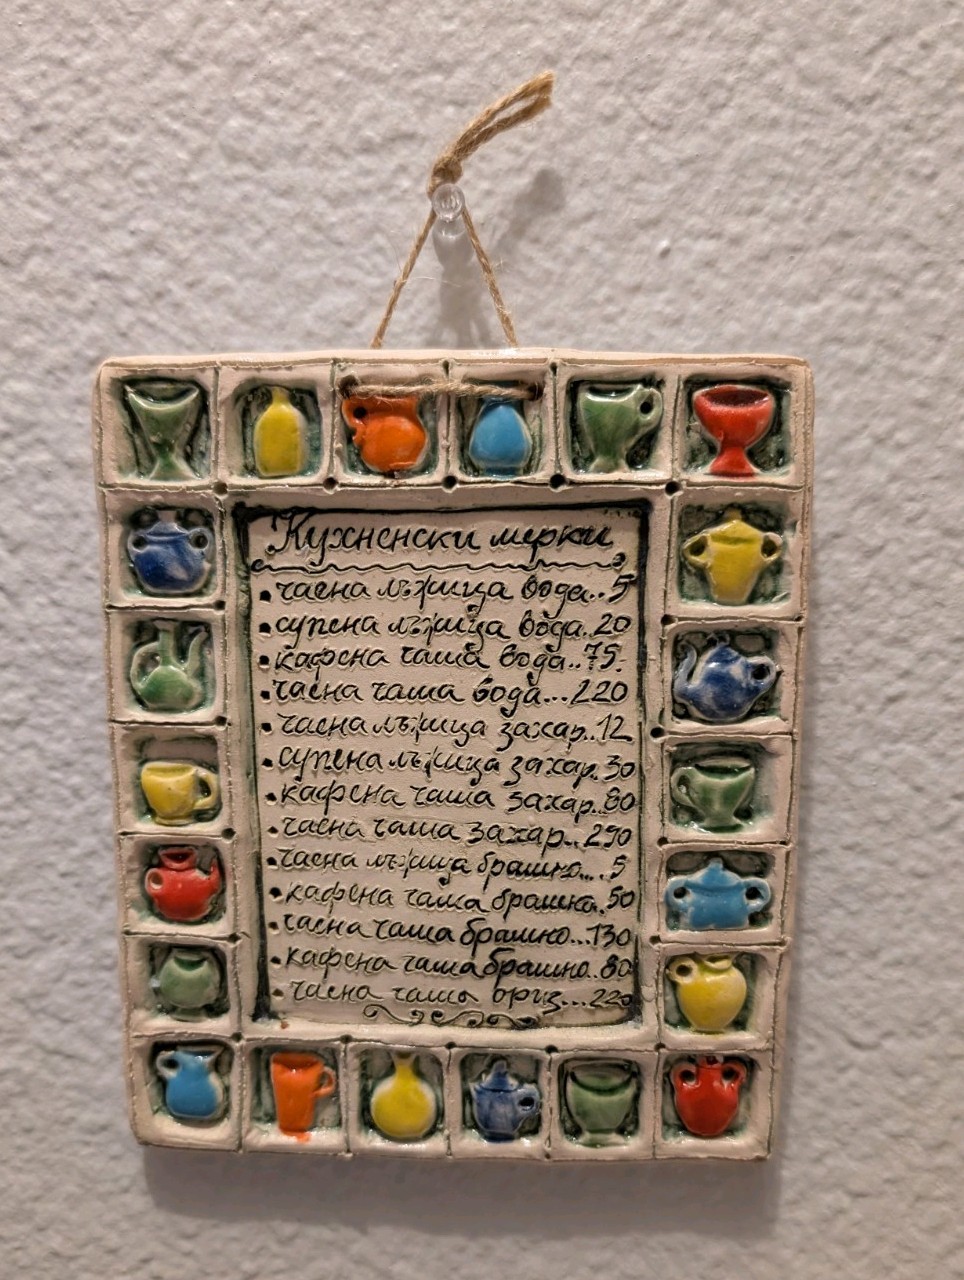 Кухненски мерки
• чаена лъжица вода..5
• супена лъжица вода.20
• кафена чаша вода..75.
• чаена чаша вода...220
• чаена лъжица захар..12
• супена лъжица захар.30
• кафена чаша захар..80
• чаена чаша захар..290
• чаена лъжица брашно...5
• кафена чаша брашна.50
• чаена чаша брашно...130
• кафена чаша брашно..80
• чаена чаша ориз...220